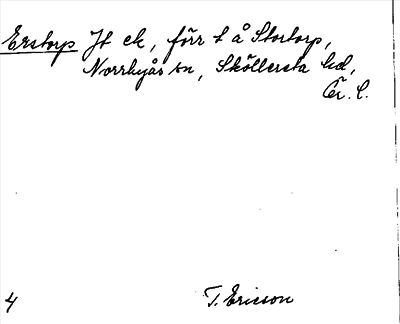 Erstorp Jt ek, förr t å Stortorp,
Norrbyås sn, Sköllersta hd,
Ör. l.
4 T. Ericson